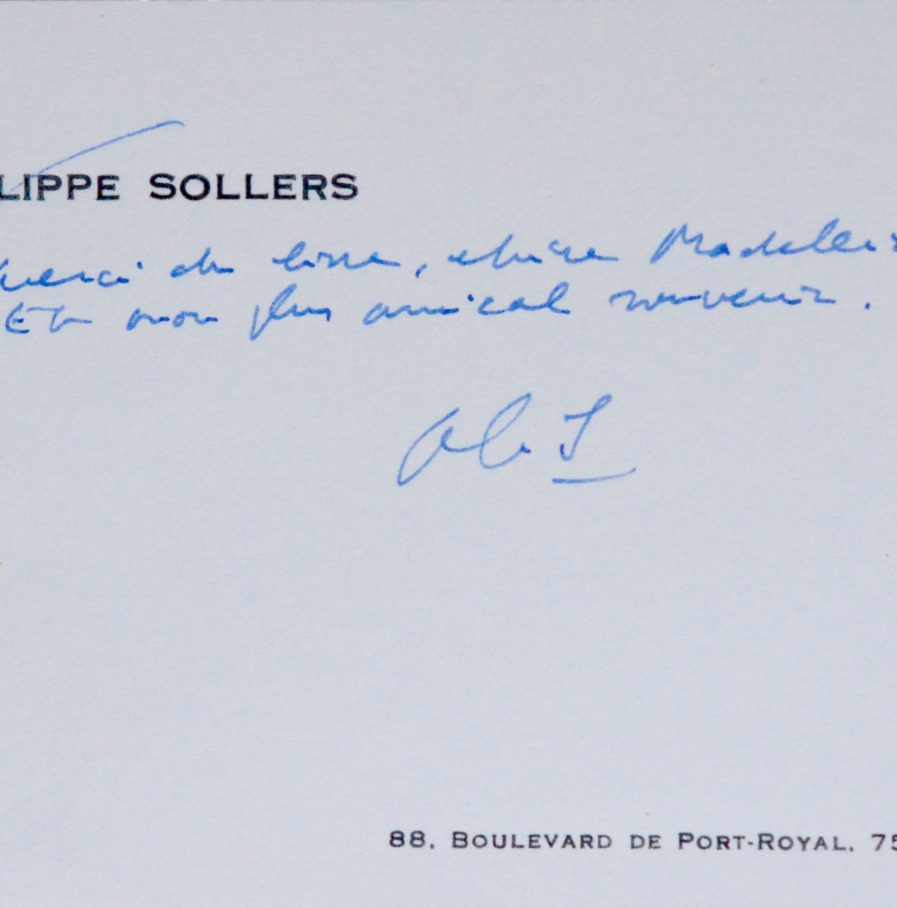 LIPPE SOLLERS
Merci du livre, chère Madeleine
Et mon plus amical souvenir.
Ph S
88, BOULEVARD DE PORT-ROYAL, 75